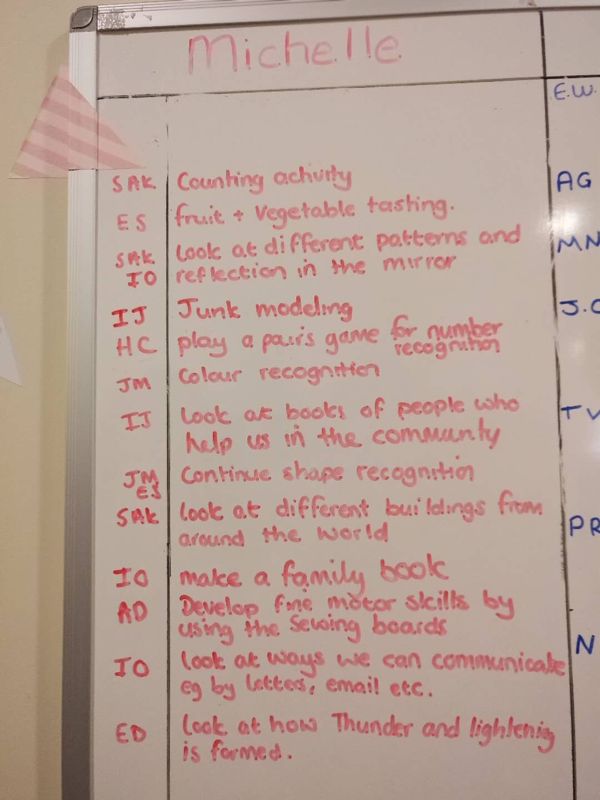 Michelle
E.W.
SAK Counting activity
AG
ES fruit + Vegetable tasting.
SAK look at different patterns and
MN
IO reflection in the mirror
IJ Junk modeling
HC play a pairs game for number
recognition
JM Colour recognition
IJ look at books of people who
TV
help us in the community
JM Continue shape recognition
ES
SAK look at different buildings from
PR
around the world
IO make a family book
AD Develop fine motor skills by
using the Sewing boards
N
IO look at ways we can communicate
eg by letters, email etc.
ED look at how Thunder and lightening
is formed.